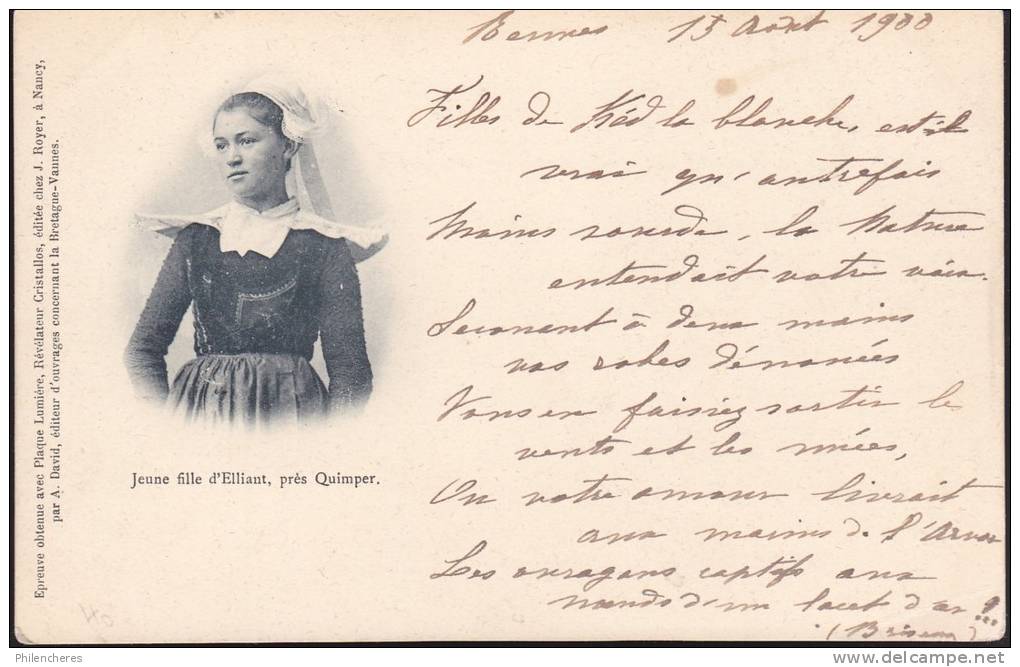 Epreuve obtenue avec Plaque Lumière, Révélateur Cristallos, éditée chez J. Royer, à Nancy,
par A. David, éditeur d'ouvrages concernant la Bretagne-Vannes.
Jeune fille d'Elliant, près Quimper.
Rennes 15 Août 1900
Filles de Kéd la blanche, est-il
vrai qu'autrefois
Moins sourde, la Nature
entendait votre voix.
Secouant à deux mains
vos robes dénouées
Vous en faisiez sortir les
vents et les nuées,
Ou votre amour livrait
aux marins de l'Arvor
Les ouragans captifs aux
nœuds d'un lacet d'or ?...
(Brizeux)
40
Philencheres
www.delcampe.net